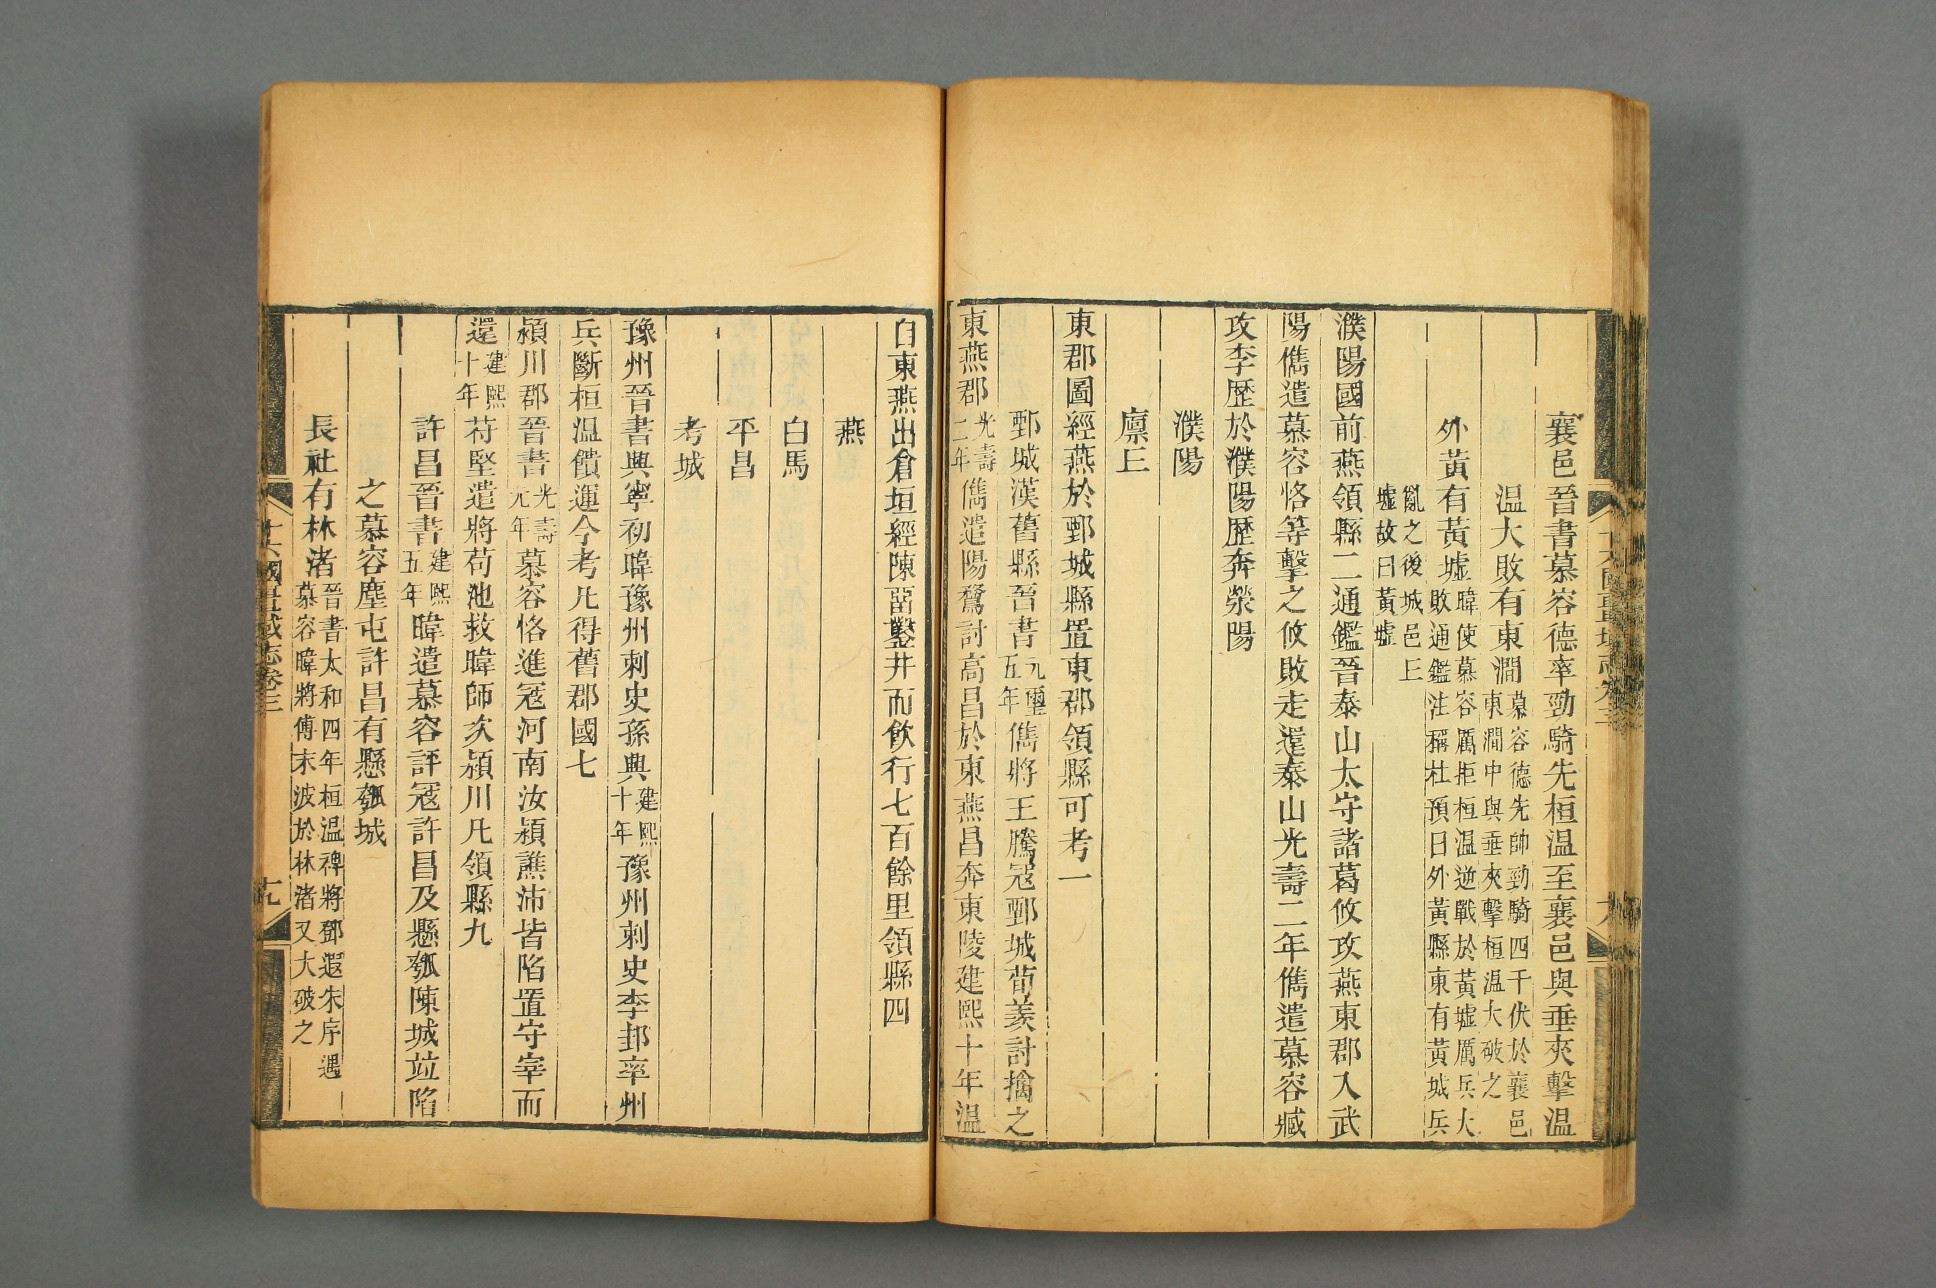 襄邑晉書慕容德率勁騎先桓温至襄邑與垂夾擊温
温大敗有東澗慕容德先帥勁騎四千伏於襄邑東澗中與垂夾擊桓温大破之
外黃有黃墟暐使慕容厲拒桓温逆戰於黃墟厲兵大敗通鑑注稱杜預曰外黃縣東有黃城兵
亂之後城邑丘墟故曰黃墟
濮陽國前燕領縣二通鑑晉泰山太守諸葛攸攻燕東郡入武
陽儁遣慕容恪等擊之攸敗走還泰山光壽二年儁遣慕容臧
攻李歷於濮陽歷奔滎陽
濮陽
廪丘
東郡圖經燕於鄄城縣置東郡領縣可考一
鄄城漢舊縣晉書元璽五年儁將王騰寇鄄城荀羨討擒之
東燕郡光壽二年儁遣陽騖討高昌於東燕昌奔東陵建熙十年温
自東燕出倉垣經陳畱鑿井而飲行七百餘里領縣四
燕
白馬
平昌
考城
豫州晉書興寧初暐豫州刺史孫興建熙十年豫州刺史李邽率州
兵斷桓温饋運今考凡得舊郡國七
潁川郡晉書光壽元年慕容恪進寇河南汝潁譙沛皆陷置守宰而
還建熙十年苻堅遣將苟池救暐師次潁川凡領縣九
許昌晉書建熙五年暐遣慕容評寇許昌及懸瓠陳城竝陷
之慕容塵屯許昌有懸瓠城
長社有林渚晉書太和四年桓温裨將鄧遐朱序遇慕容暐將傅末波於林渚又大破之
十六國疆域志卷三